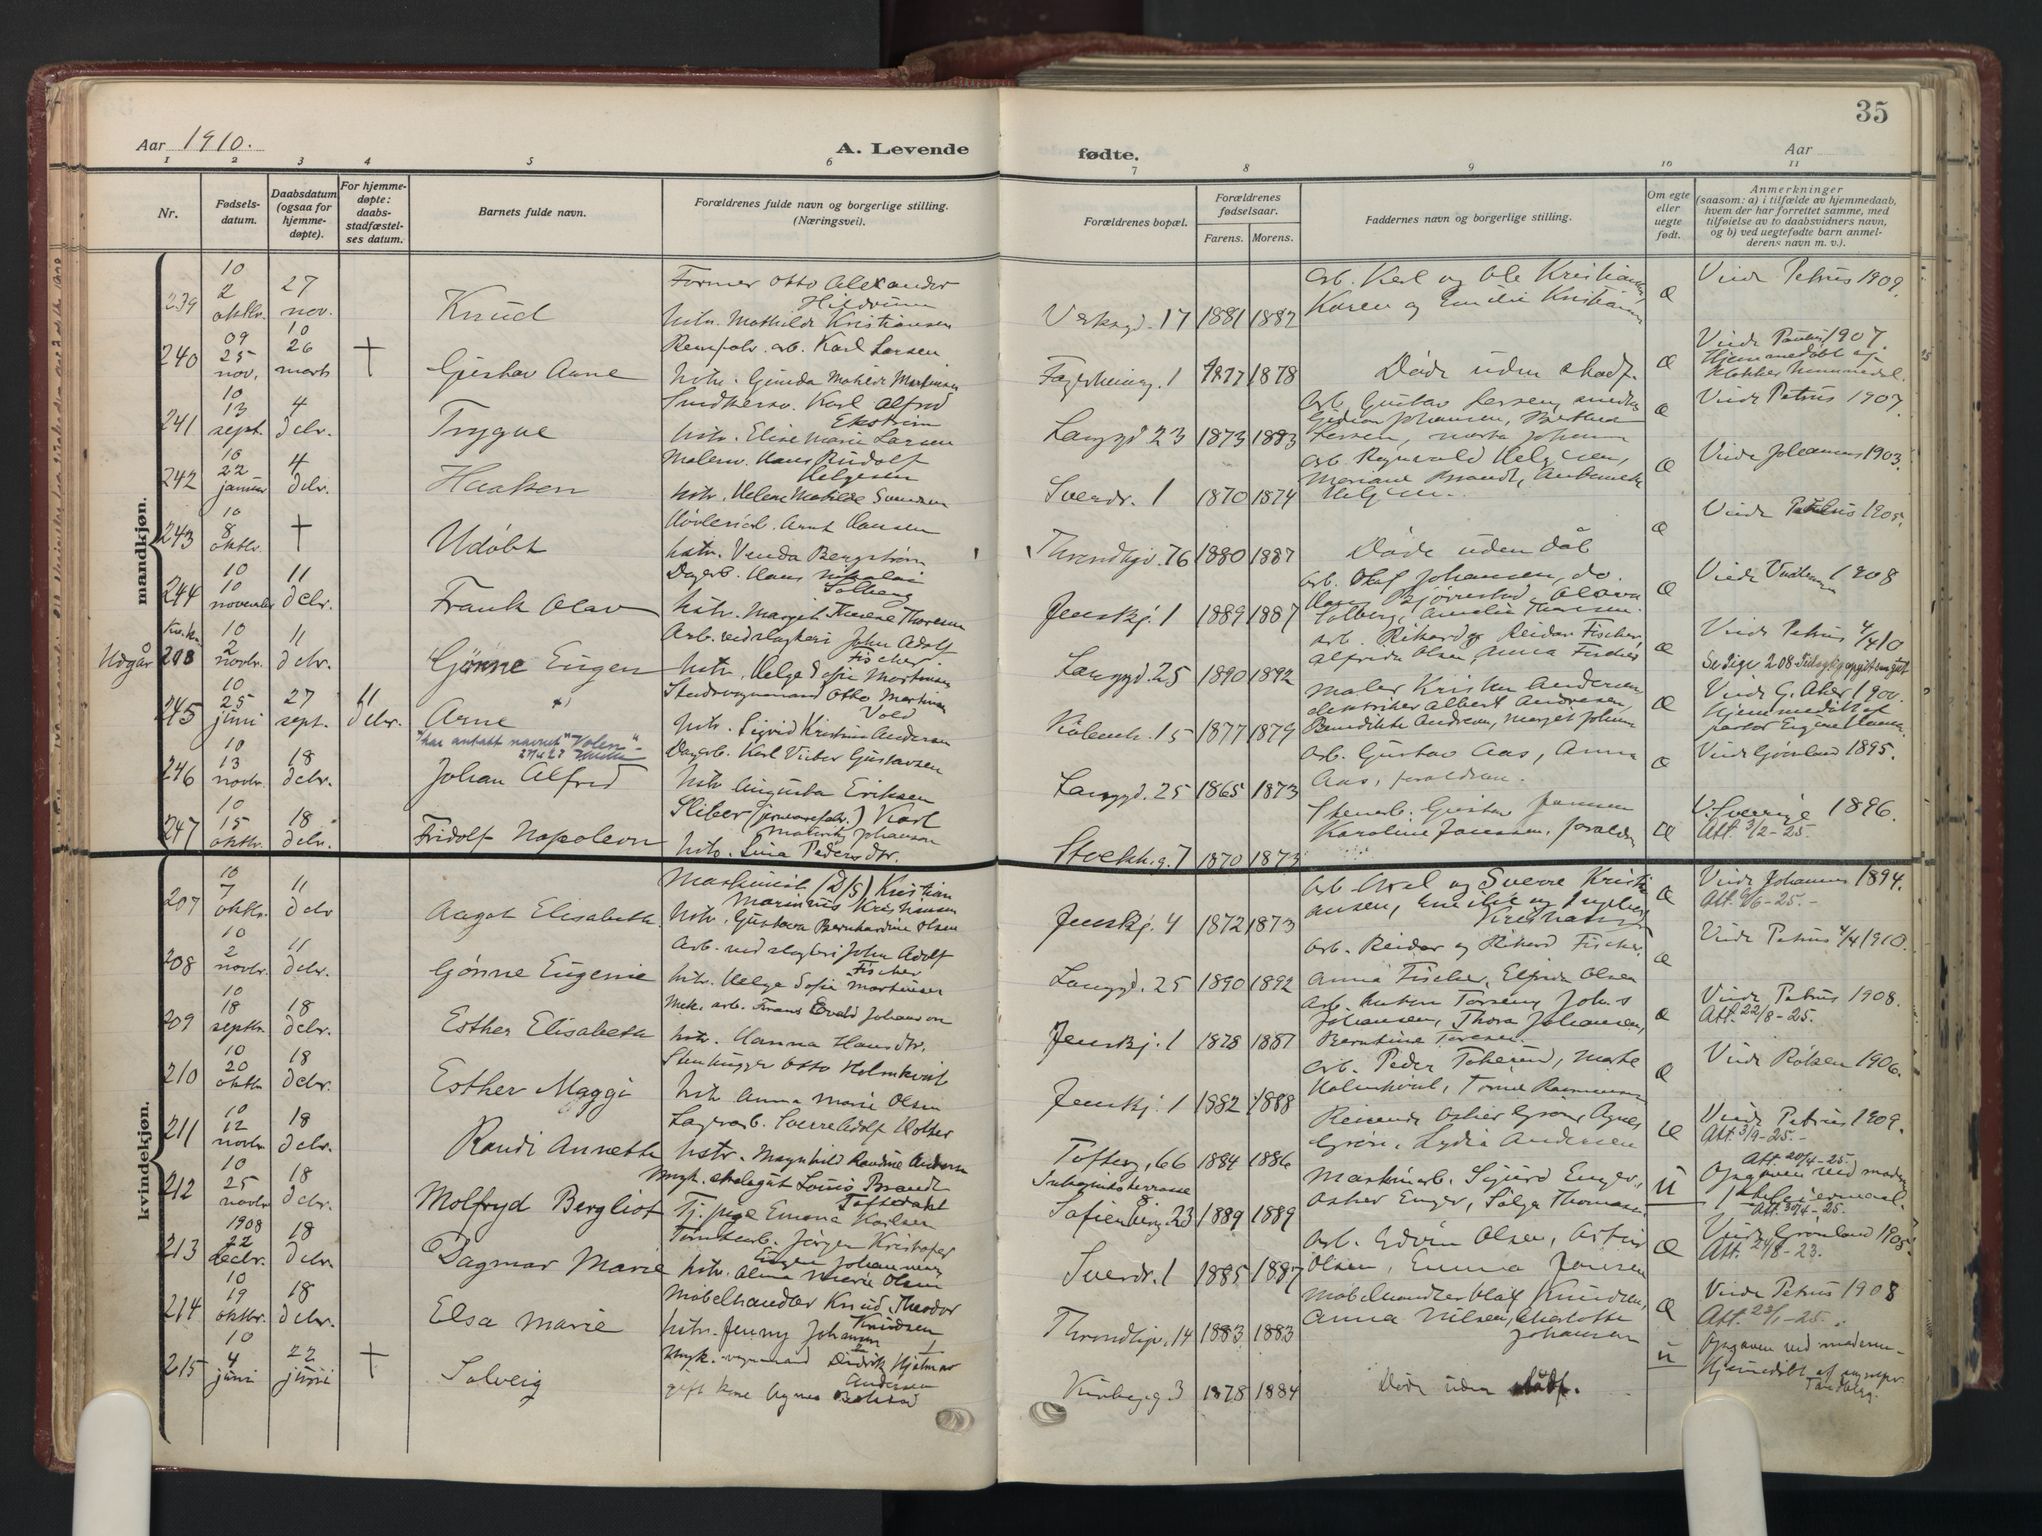 35
Aar 1910.
A. Levende
fødte.
Aar
1 2 3 4 5 6 7 8 9 10 11
Nr.
Fødsels-
datum.
Daabsdatum
(ogsaa for
hjemme-
døpte).
For hjemme-
døpte:
daabs-
stadfæstel-
ses datum.
Barnets fulde navn.
Forældrenes fulde navn og borgerlige stilling.
(Næringsvei).
Forældrenes bopæl.
Forældrenes
fødselsaar.
Farens. Morens.
Faddernes navn og borgerlige stilling.
Om egte
eller
uegte
født.
Anmerkninger
(saasom: a) i tilfælde av hjemmedaab,
hvem der har forrettet samme, med
tilføielse av to daabsvidners navn,
og b) ved uegtefødte barn anmel-
derens navn m. v.).
mandkjøn.
239
10
2
oktbr.
27
nov.
Knud
Former Otto Alexander
Hildrum
hstr. Mathilde Kristiansen
Verksgd. 17 1881 1882
Arb. Karl og Ole Kristiansen
Karen og Emilie Kristiansen
Æ
Viede Petrus 1909.
240
09
25
nov.
10
26
marts
†
Gustav Arne
arb. Karl Larsen
hstr. Gunda Matilde Martinsen
Fagerheimg. 1 1877 1878
Døde uden stadf.
Æ
Viede Paulus 1907.
Hjemmedøbt af
klokker
241
10
13
sept.
4
debr.
Trygve
Karl Alfred
Ekstrøm
hstr. Elise Marie Larsen
Langgd 23 1873 1883
Arb. Gustav
Johansen,
Æ
Viede Petrus 1907.
242
10
22
januar
4
debr.
Haakon
Malersv. Hans Rudolf
Helgesen
hstr. Helene Matilde Svendsen
Sverdr. 1 1870 1874
Arb. Ragnvald Helgesen,
Mariane Brandt,
Helgesen.
Æ
Viede Johannes 1903.
243
10
8
oktbr.
†
Udøbt
Høvleriarb. Arnt Hansen
hstr. Venda Bergstrøm
Throndhjv. 76 1880 1887
Døde uden dåb
Æ
Viede Petrus 1905.
244
10
10
november
11
debr.
Frank Olav
Dagarb. Hans Nikolai
Solberg
hstr. Margit Therese Thoresen
Jenskj. 1 1889 1887
Arb. Olaf Johansen, do.
Hans Bjørrestad,
Solberg, Amalie Thoresen.
Æ
Viede 1908
Udgår
Kv.kn
208
10
2
novbr.
11
debr.
Gjønne Eugen
Arb. ved slagteri John Adolf
Fischer.
hstr. Helga Sofie Martinsen
Langgd. 25 1890 1892
Arb. Rikard og Reidar Fischer,
Alfrida Olsen, Anna Fischer
Æ
Viede Petrus 4/4 10
Se Pige 208
245
10
25
juni
27
sept.
11
debr.
Arne
"har antatt navnet "Volen".
Otto Martinus
Vold
hstr. Sigrid Kristine Andersen
Københ. 15 1877 1879
Maler Kristen Andersen
elektriker Albert Andresen,
Benedikte Andresen, Margit Johansen
Æ
Viede G. Aker 1900.
Hjemmedøbt af
pastor Eugene Hanssen.
246
10
13
novbr.
18
debr.
Johan Alfred
Dagarb. Karl Viktor Gustavsen
hstr Augusta Eriksen
Langgd. 25 1865 1873
Arb. Gustav Aas, Anna
Aas, forældrene.
Æ
Viede Grønland 1895.
247
10
15
oktbr.
18
debr.
Fridolf Napoleon
Sliber (jernvarefabr.) Karl
Mauritz Johanson
hstr. Lina Pedersdtr.
Stockh.g. 7 1870 1873
Stenarb. Gustav Jansen
Karoline Janssen, forældre
Æ
V. Sverige 1896.
Att. 3/2-25.
kvindekjøn.
207
10
7
oktbr.
11
debr
Aagot Elisabeth.
Maskinist (D/S) Kristian
Marinius Kristiansen
hstr. Gustava Bernhardine Olsen
Jenskj. 4 1872 1873
Arb Axel og Sverre Kristi-
ansen, Emilie og Ingeborg
Kristiansen
Æ
Viede Johannes 1894.
Att. 9/6-25.-
208
10
2
novbr.
11
debr.
Gjønne Eugenie
Arb. ved slagteri John Adolf
Fischer
hstr. Helga Sofie Martinsen
Langgd. 25 1890 1892
Arb. Reidar og Rikard Fischer.
Anna Fischer, Elfrida Olsen
Æ
Viede Petrus 4/4 1910.
209
10
18
septbr.
18
debr.
Esther Elisabeth
Mek. arb. Frans Evald Johanson
hstr. Hanna Hansdtr.
Jenskj. 1 1878 1887
Arb. Anton Toresen, Johs
Johansen, Thora Johansen,
Berntine Toresen.
Æ
Viede Petrus 1908.
Att. 22/8-25.
210
10
20
oktbr
18
debr.
Esther Maggi
Stenhugger Otto Holmkvist
hstr Anna Marie Olsen
Jenskj. 1 1882 1888
Arb. Peder Tokerud, Marte
Holmkvist,
Æ
Viede Røken 1906.
211
10
12
novbr.
18
debr.
Randi Annette
Lagerarb. Sverre Adolf Hother
hstr. Magnhild Randine Andersen
Toftesg. 66 1884 1886
Reisende Oskar Grøn, Agnes
Grøn, Lydia Andersen
Æ
Viede Petrus 1909.
Att. 3/9-25.-
212
10
25
novbr
18
debr.
Molfryd Bergliot
Ungk. Louis Brandt
Toftedahl
Tj. pige Emma Karlsen
Sofienberg. 23 1889 1889
Maskinarb. Sigurd Enger,
Oskar Enger, Solga Thomasen
U
Att. 20/4-25.
Opgaven ved moderen
Att. 30/4-25.
213
1908
22
decbr.
18
debr.
Dagmar Marie
Tomtearb. Jørgen Kristofer
Johannesen
hstr. Alma Marie Olsen
Sverdr. 1 1885 1887
Arb. Edvin Olsen, Astrid
Olsen, Emma Jansen
Æ
Viede Grønland 1905.
Att. 24/8-23.
214
10
19
oktbr.
18
debr.
Elsa Marie
Møbelhandler Knud Theodor
Knudsen
hstr. Jenny Johansen
Throndhjv. 14 1883 1883
Møbelhandler Olaf Knudsen,
Anna Nilsen, Charlotte
Johansen
Æ
Viede Petrus 1908
Att. 23/1-25.
215
10
4
juni
22
juni
†
Solveig
Ungk. vognmand Didrik Hjalmar
Andersen
gift kone Agnes
Kirkegg. 3 1878 1884
Døde uden stadf.
U
Opgaven ved moderen-
Hjemmedøbt af sognepr.
Tandberg.